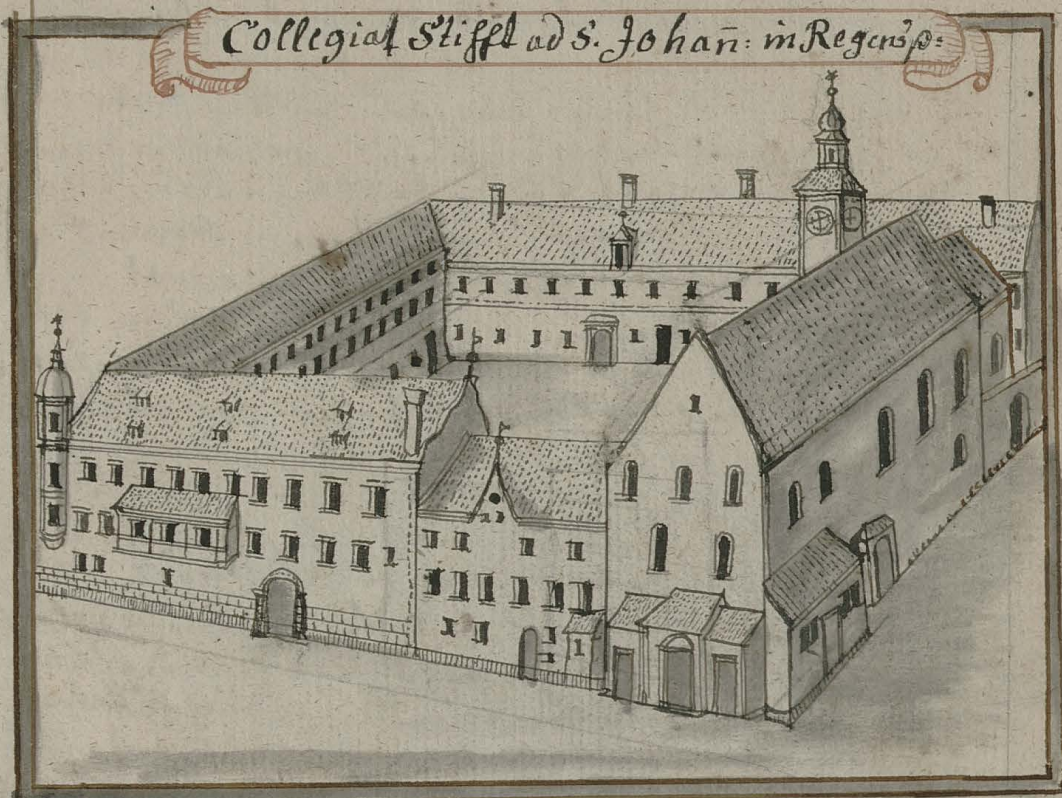 Collegiat Stifft ad S. Johan̄: in Regensp: